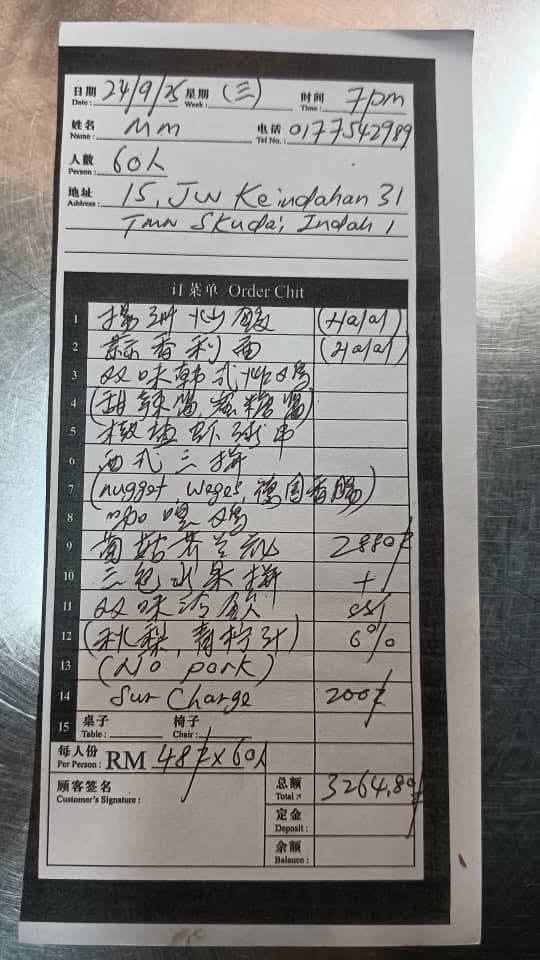 日期 Date: 24/9/25 星期 Week: (三) 时间 Time: 7pm
姓名 Name: Mm 电话 Tel No.: 0177542989
人数 Person: 60人
地址 Address: 15, Jln Keindahan 31
Tmn Skudai Indah 1
订菜单 Order Chit
1 扬州炒饭 (Halal)
2 蒜香利面 (Halal)
3 双味韩式炸鸡
4 (甜辣酱,
5 虾球串
6 西式三拼
7 (nugget, weges, 德国香肠)
8 咖喱鸡
9 菌菇芥兰 2880
10 三色水果拼 +
11 双味 sst
12 6%
13 (No pork)
14 Sur Charge 200
15 桌子 Table: 椅子 Chair:
每人份 Per Person: RM 48 x 60人
顾客签名 Customer's Signature:
总额 Total: 3264.80
定金 Deposit:
余额 Balance: